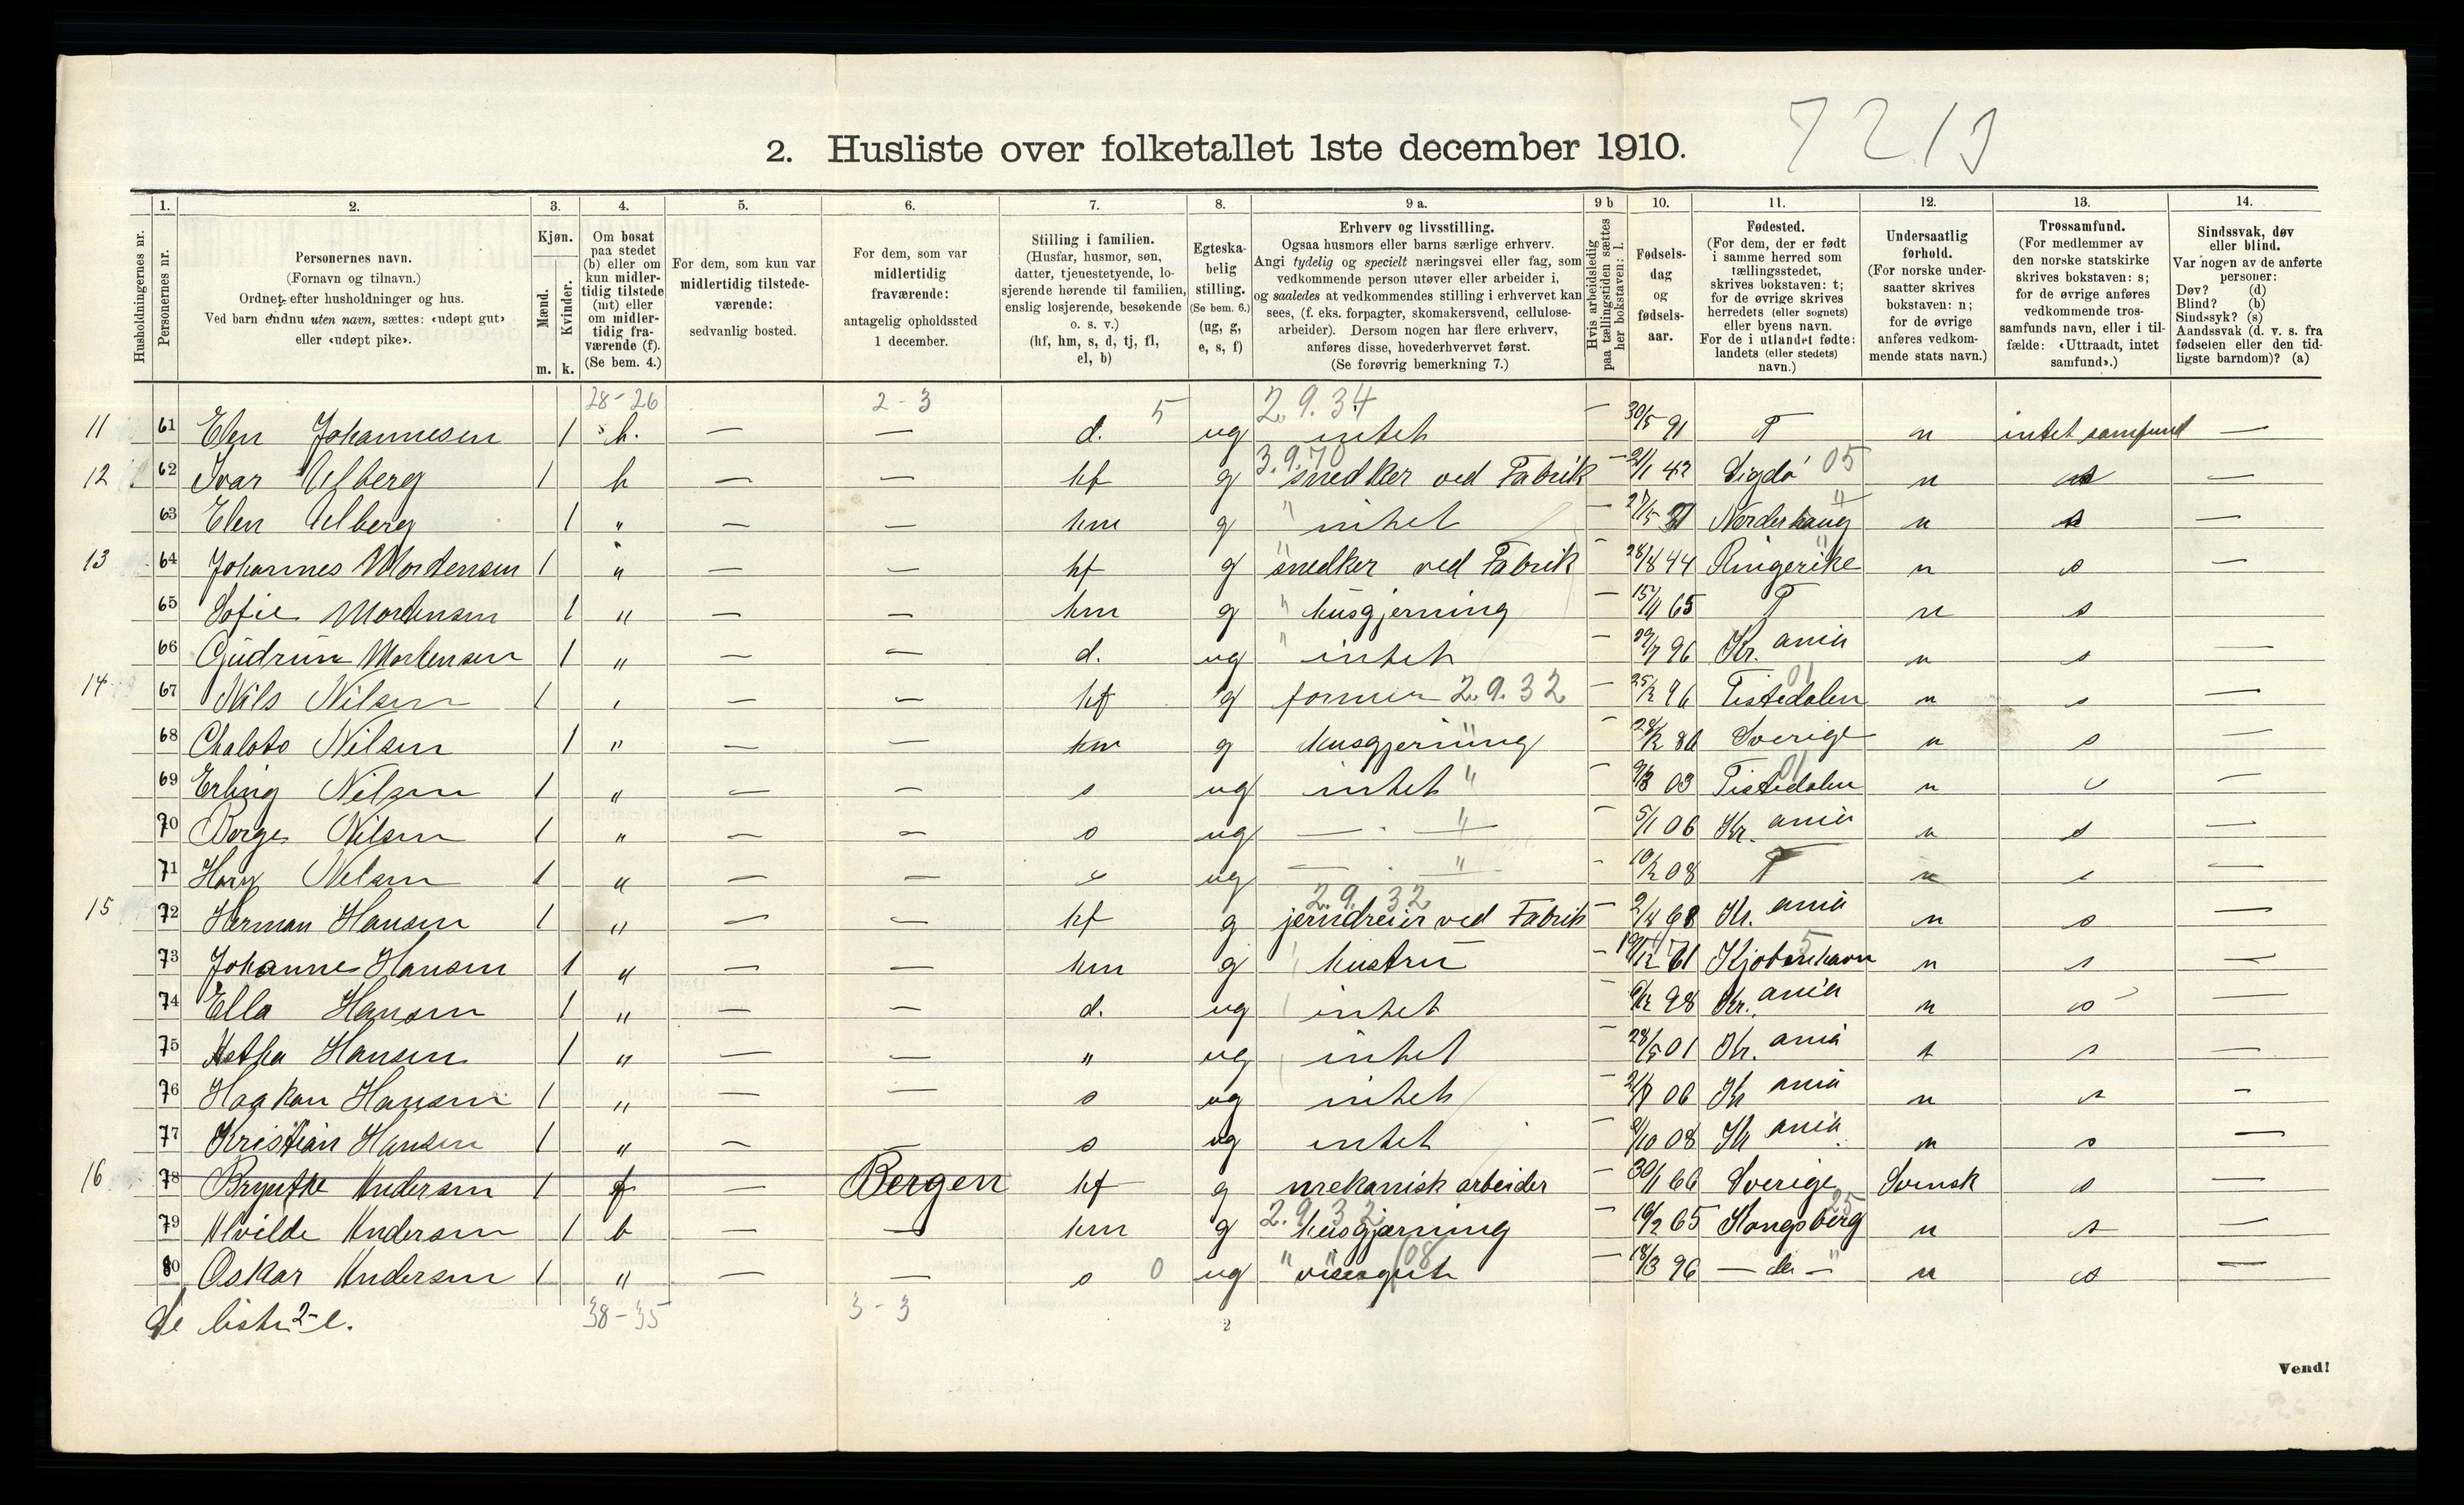 7213
2. Husliste over folketallet 1ste december 1910.
Husholdningernes nr.
1. Personernes nr.
2. Personernes navn. (Fornavn og tilnavn.) Ordnet efter husholdninger og hus. Ved barn endnu uten navn, sættes: «udøpt gut» eller «udøpt pike».
3. Kjøn. Mænd. m. Kvinder. k.
4. Om bosat paa stedet (b) eller om kun midlertidig tilstede (mt) eller om midlertidig fraværende (f). (Se bem. 4.)
5. For dem, som kun var midlertidig tilstedeværende: sedvanlig bosted.
6. For dem, som var midlertidig fraværende: antagelig opholdssted 1 december.
7. Stilling i familien. (Husfar, husmor, søn, datter, tjenestetyende, losjerende hørende til familien, enslig losjerende, besøkende o. s. v.) (hf, hm, s, d, tj, fl, el, b)
8. Egteskabelig stilling. (Se bem. 6.) (ug, g, e, s, f)
9 a. Erhverv og livsstilling. Ogsaa husmors eller barns særlige erhverv. Angi tydelig og specielt næringsvei eller fag, som vedkommende person utøver eller arbeider i, og saaledes at vedkommendes stilling i erhvervet kan sees, (f. eks. forpagter, skomakersvend, cellulosearbeider). Dersom nogen har flere erhverv, anføres disse, hovederhvervet først. (Se forøvrig bemerkning 7.)
9 b Hvis arbeidsledig paa tællingstiden sættes her bokstaven: l.
10. Fødselsdag og fødselsaar.
11. Fødested. (For dem, der er født i samme herred som tællingsstedet, skrives bokstaven: t; for de øvrige skrives herredets (eller sognets) eller byens navn. For de i utlandet fødte: landets (eller stedets) navn.)
12. Undersaatlig forhold. (For norske undersaatter skrives bokstaven: n; for de øvrige anføres vedkommende stats navn.)
13. Trossamfund. (For medlemmer av den norske statskirke skrives bokstaven: s; for de øvrige anføres vedkommende trossamfunds navn, eller i tilfælde: «Uttraadt, intet samfund».)
14. Sindssvak, døv eller blind. Var nogen av de anførte personer: Døv? (d) Blind? (b) Sindssyk? (s) Aandssvak (d. v. s. fra fødselen eller den tidligste barndom)? (a)
28-26 2-3 5 2.9.34
11 61 Elen Johannesen 1 b. — — d. ug intet — 30/5 91 T n intet samfund —
3.9.70 05
12 62 Ivar Ulberg 1 b — — hf g snedker ved Fabrik — 21/1 42 Sigdø n s —
63 Elen Ulberg 1 " — — hm g " intet — 27/5 Norderhaug n s —
13 64 Johannes Mortensen 1 " — — hf g snedker ved Fabrik — 28/8 44 Ringerike n s —
65 Sofie Mortensen 1 " — — hm g " husgjerning — 15/11 65 T n s
66 Gudrun Mortensen 1 " — — d. ug " intet — 29/7 96 Kr.ania n s —
14 67 Nils Nilsen 1 " — — hf g former 2.9.32 — 25/2 Tistedalen 01 n s —
68 Chaloto Nilsen 1 " — — hm g husgjerning — 28/2 Sverige n s —
69 Erling Nilsen 1 " — — s ug intet " — 9/3 03 Tistedalen 01 n s —
70 Borge Nilsen 1 " — — s ug — " — — 5/1 06 Kr.ania n s —
71 Hary Nilsen 1 " — — s ug — " — — 19/2 08 T n s —
2.9.32
15 72 Herman Hansen 1 " — — hf g jerndreier ved Fabrik — 2/4 68 Kr.ania n s —
73 Johanne Hansen 1 " — — hm g hustru — 19/12 61 Kjøbenhavn n s —
74 Ella Hansen 1 " — — d. ug intet — 6/12 98 Kr.ania n s —
75 Hansen 1 " — — " ug intet — 28/5 01 Kr.ania s —
76 Haakon Hansen 1 " — — s ug intet — 06 Kr ania n s —
77 Kristian Hansen 1 " — — s ug intet — 9/10 08 Kr ania n s —
16 78 Andersen 1 f — Bergen hf g mekanisk arbeider — 30/1 66 Sverige Svensk s —
2.9.32 25
79 Alvilde Andersen 1 b — — hm g husgjærning — 16/2 65 Kongsberg n s —
80 Oskar Andersen 1 " — — s 0 ug " visergut 108 — 18/3 96 — do — " n s —
38-35 3-3
2
Vend!